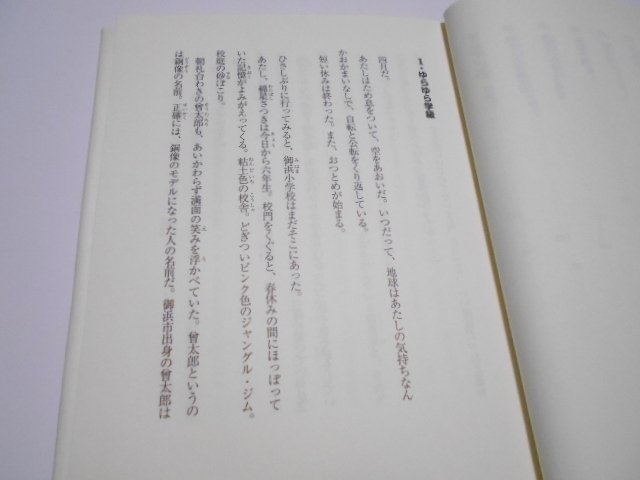 1・ゆらゆら学級
四月だ。
あたしはため息をついて、空をあおいだ。いつだって、地球はあたしの気持ちなん
かおかまいなしで、自転と公転をくり返している。
短い休みは終わった。また、おつとめが始まる。
ひさしぶりに行ってみると、御浜小学校はまだそこにあった。
あたし、楯星さつきは今日から六年生。校門をくぐると、春休みの間にほっぽって
いた記憶がよみがえってくる。粘土色の校舎。どぎついピンク色のジャングル・ジム。
校庭の砂ぼこり。
朝礼台わきの曾太郎も、あいかわらず満面の笑みを浮かべていた。曾太郎というの
は銅像の名前。正確には、銅像のモデルになった人の名前だ。御浜市出身の曾太郎は